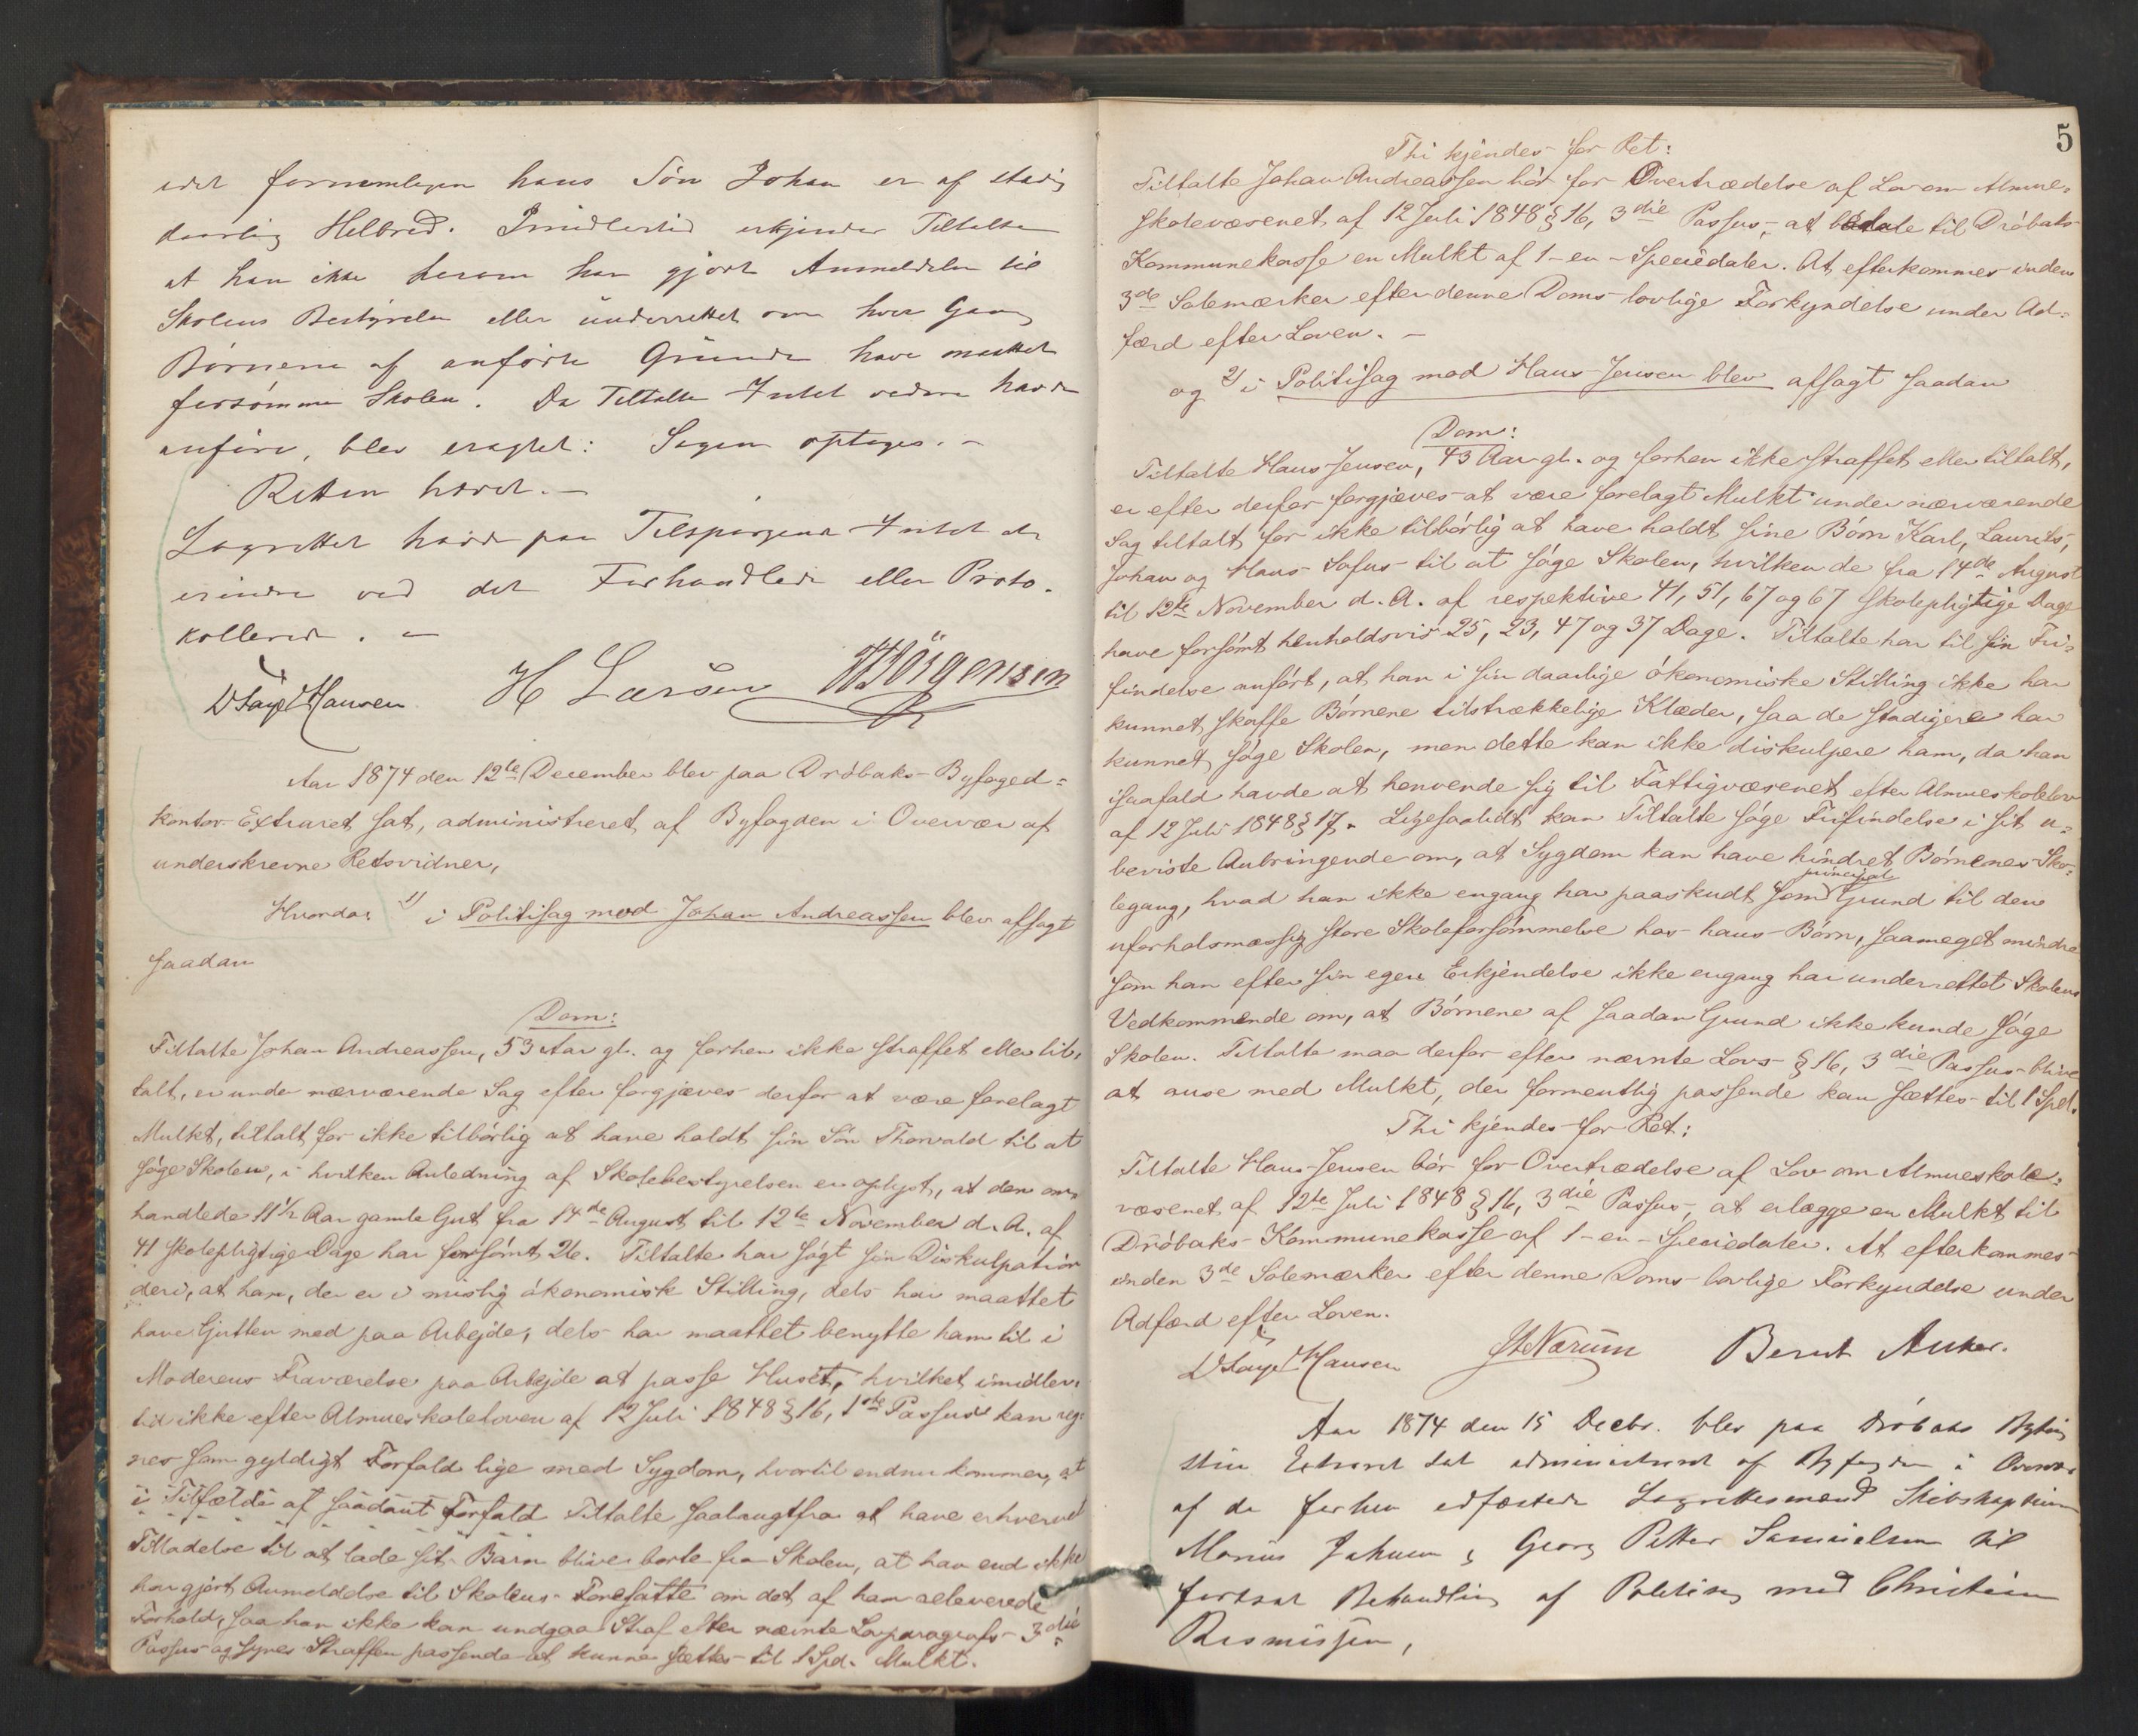 idet fornemligen hans Sön Johan er af stadig
daarlig Helbred. Imidlertid erkjender Tiltalte
at han ikke herom har gjort Anmeldelse til
Skolens Bestyrelse eller underrettet om hver Gang
Börnene af anförte Grunde have maattet
forsömme Skolen. Da Tiltalte Intet videre havde
anföre, blev eragtet: Sagen optages. –
Retten hævet. –
Lagrettet havde paa Tilspørgende Intet at
erindre ved det Forhandlede eller Proto-
kollerede. –
Hansen H Larsen Jörgensen
Aar 1874 den 12te December blev paa Dröbaks Byfoged-
kontor Extraret sat, administreret af Byfogden i Overvær af
underskrevne Retsvidner,
Hvorda: 1) i Politisag mod Johan Andreassen blev afsagt
saadan
Dom:
Tiltalte Johan Andreassen, 53 Aar gl. og forhen ikke straffet eller til-
talt, er under nærværende Sag efter forgjæves derfor at være forelagt
Mulkt, tiltalt for ikke tilbörlig at have holdt sin Sön Thorvald til at
söge Skolen, i hvilken Anledning af Skolebestyrelsen er oplyst, at den om-
handlede 11½ Aar gamle Gut fra 14de August til 12te November d. A. af
41 skolepligtige Dage har forsömt 26. Tiltalte har sögt sin Diskulpation
deri, at han, der er i mislig ökonomisk Stilling, dels har maattet
have Gutten med paa Arbejde, dels har maattet benytte ham til i
Moderens Fraværelse paa Arbejde at passe Huset, hvilket imidler-
tid ikke efter Almueskoleloven af 12 Juli 1848 § 16, 1ste Passus kan reg-
nes som gyldigt Forfald lige med Sygdom, hvortil endnu kommer, at
i Tilfælde af saadant Forfald Tiltalte saalangtfra at have erhvervet
Tilladelse til at lade sit Barn blive borte fra Skolen, at han end ikke
har gjort Anmeldelse til Skolens Foresatte om det af ham releverede
Forhold, saa han ikke kan undgaa Straf efter nævnte Lovparagrafs 3die
Passus og synes Straffen passende at kunne sættes til 1 Spd. Mulkt.
5
Thi kjendes for Ret:
Tiltalte Johan Andreassen bör for Overtrædelse af Lov om Almue-
skolevæsenet af 12 Juli 1848 § 16, 3die Passus, at betale til Dröbaks
Kommunekasse en Mulkt af 1 – en – Speciedaler. At efterkommes inden
3de Solemærker efter denne Doms lovlige Forkyndelse under Ad-
færd efter Loven. –
og 2) i Politisag mod Hans Jensen blev afsagt saadan
Dom:
Tiltalte Hans Jensen, 43 Aar gl. og forhen ikke straffet eller tiltalt,
er efter derfor forgjæves at være forelagt Mulkt under nærværende
Sag tiltalt for ikke tilbörlig at have holdt sine Börn Karl, Laurits,
Johan og Hans Sofus til at söge Skolen, hvilken de fra 14de August
til 12te November d. A. af respektive 41, 51, 67 og 67 skolepligtige Dage
have forsömt henholdsvis 25, 23, 47 og 37 Dage. Tiltalte har til sin Fri-
findelse anfört, at han i sin daarlige ökonomiske Stilling ikke har
kunnet skaffe Börnene tilstrækkelige Klæder, saa de stadigere har
kunnet söge Skolen, men dette kan ikke diskulpere ham, da han
isaafald havde at henvende sig til Fattigvæsenet efter Almueskolelov
af 12 Juli 1848 § 17. Ligesaalidt kan Tiltalte söge Frifindelse i sit u-
beviste Anbringende om, at Sygdom kan have hindret Börnenes Sko-
legang, hvad han ikke engang har paaskudt som principal Grund til den
uforholdsmæssig store Skoleforsömmelse hos hans Börn, saameget mindre
som han efter sin egen Erkjendelse ikke engang har underrettet Skolens
Vedkommende om, at Börnene af saadan Grund ikke kunde söge
Skolen. Tiltalte maa derfor efter nævnte Lovs § 16, 3die Passus blive
at anse med Mulkt, der formentlig passende kan sættes til 1 Spd.
Thi kjendes for Ret:
Tiltalte Hans Jensen bör for Overtrædelse af Lov om Almueskole-
væsenet af 12te Juli 1848 § 16, 3die Passus, at erlægge en Mulkt til
Dröbaks Kommunekasse af 1 – en – Speciedaler. At efterkommes
inden 3de Solemærker efter denne Doms lovlige Forkyndelse under
Adfærd efter Loven.
Hansen Nærum Bernt Anker.
Aar 1874 den 15 Decbr. blev paa Dröbaks Bything
stue Extraret sat administreret af Byfogden i Overvær
af de forhen edfæstede Lagrettesmænd Skibskaptein
Marius Johnsen & Georg Petter Samuelsen til
fortsat Behandling af Politisag mod Christian
Rasmussen,